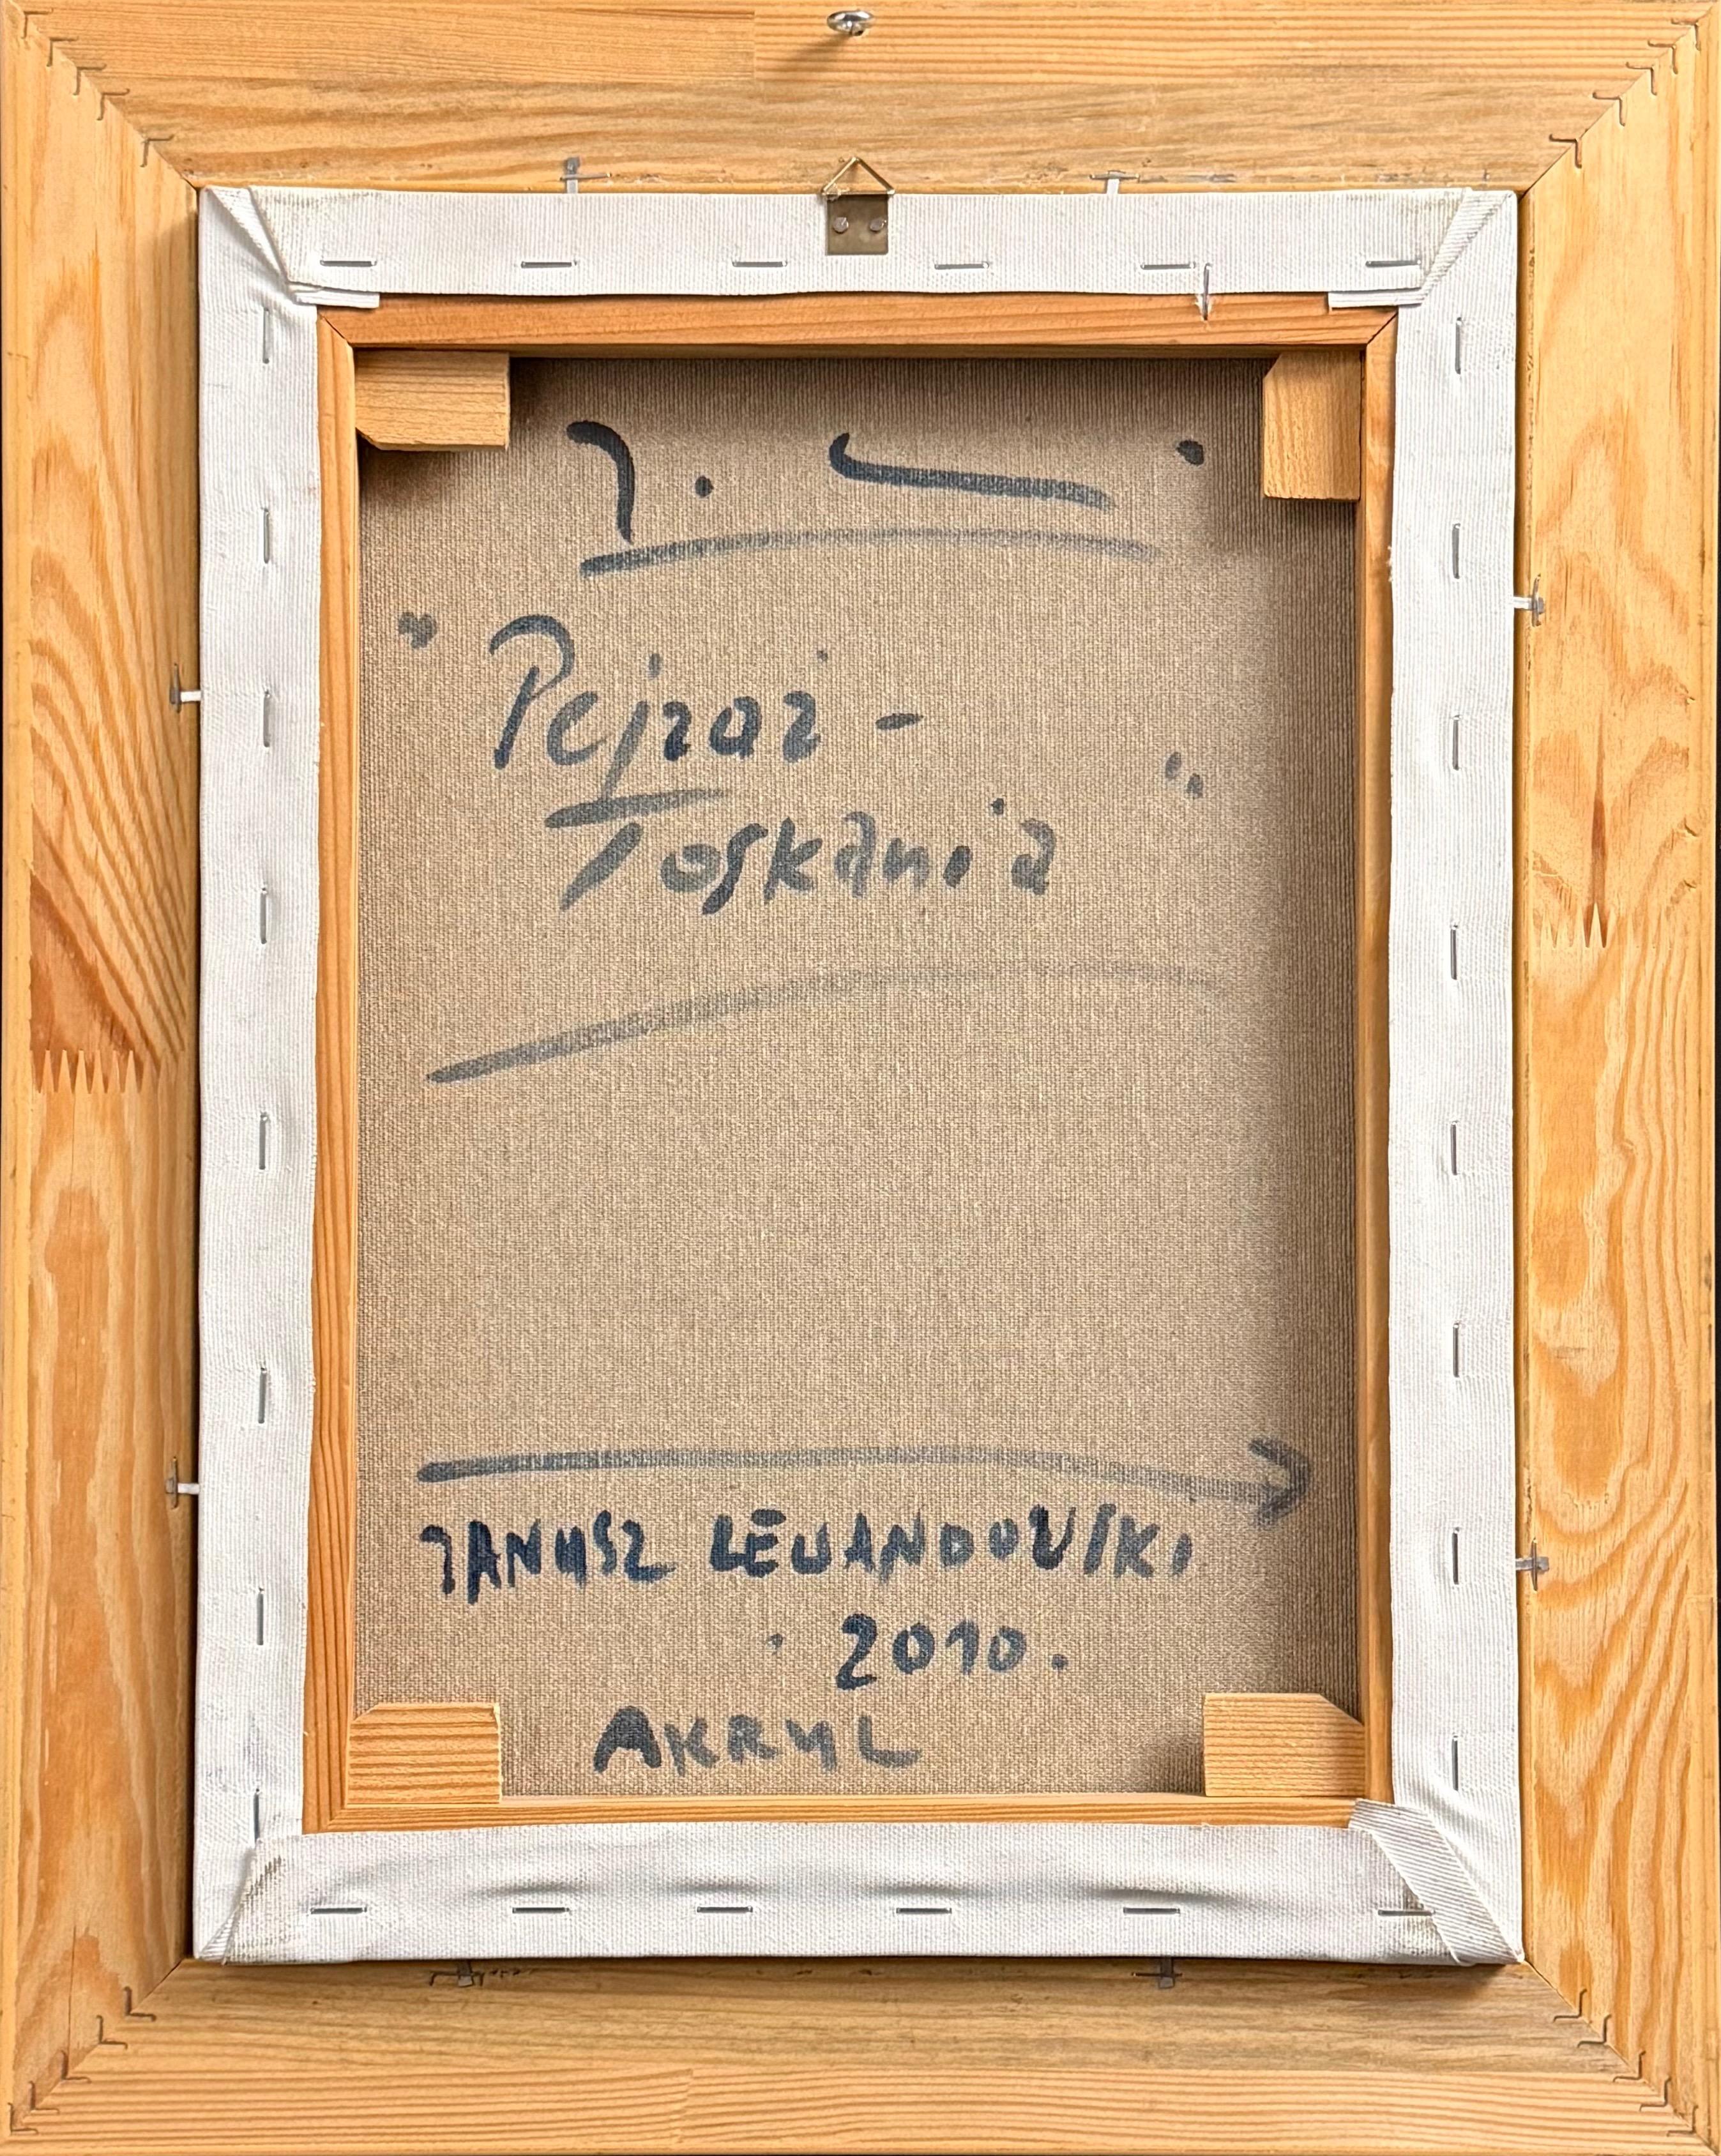 J. L
"Pejzaż -
Toskania"
JANUSZ LEWANDOWSKI
2010.
AKRYL